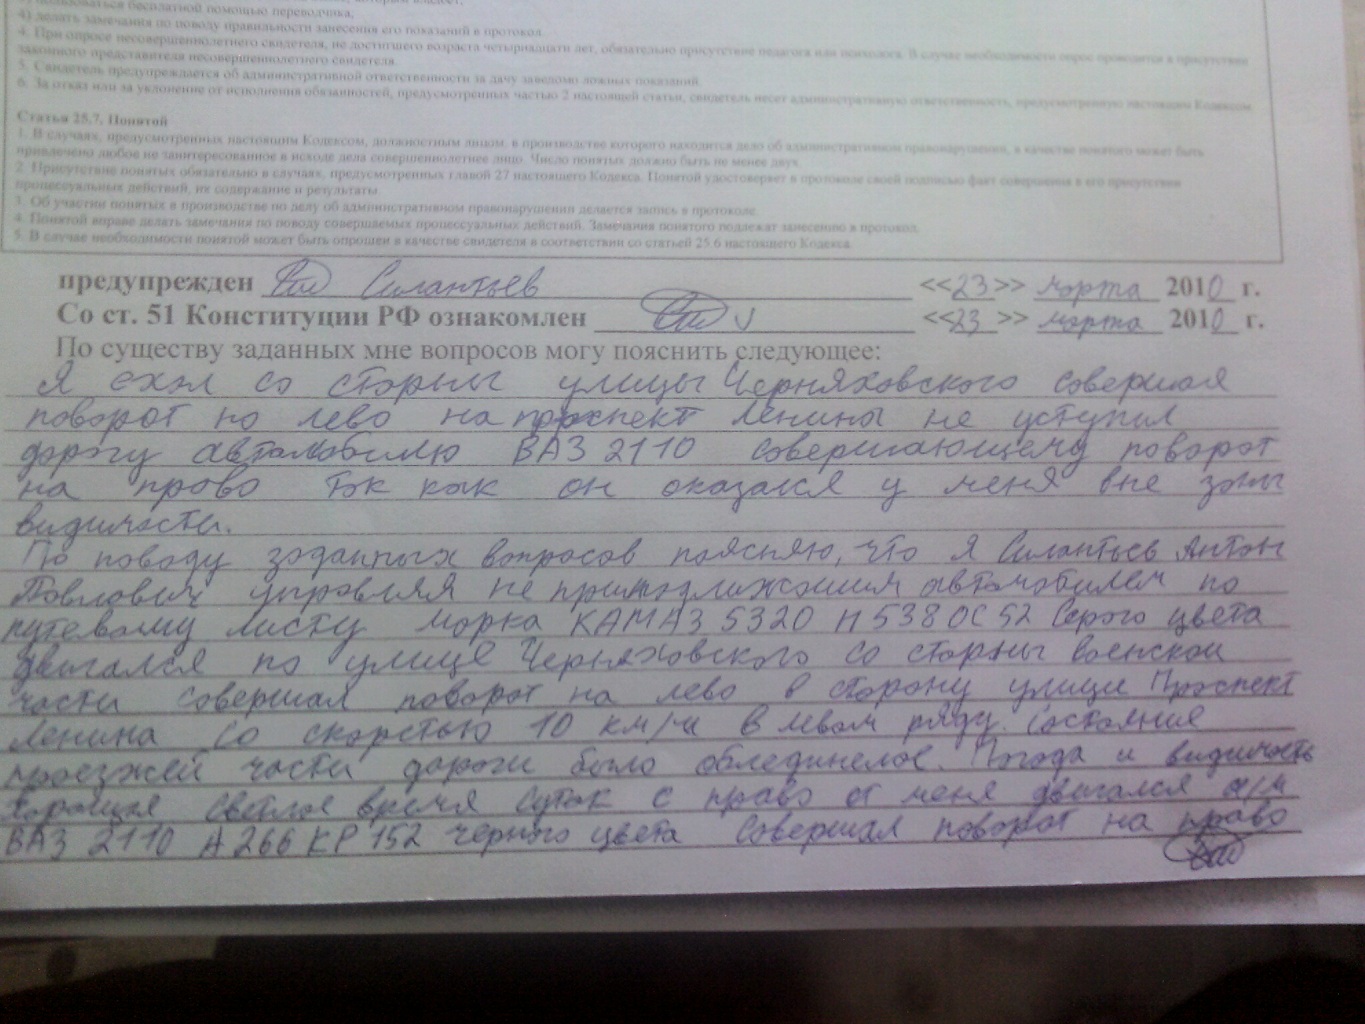 пользоваться бесплатной помощью переводчика;
4) делать замечания по поводу правильности занесения его показаний в протокол.
4. При опросе несовершеннолетнего свидетеля, не достигшего возраста четырнадцати лет, обязательно присутствие педагога или психолога. В случае необходимости опрос проводится в присутствии
законного представителя несовершеннолетнего свидетеля.
5. Свидетель предупреждается об административной ответственности за дачу заведомо ложных показаний.
6. За отказ или за уклонение от исполнения обязанностей, предусмотренных частью 2 настоящей статьи, свидетель несет административную ответственность, предусмотренную настоящим Кодексом.
Статья 25.7. Понятой
1. В случаях, предусмотренных настоящим Кодексом, должностным лицом, в производстве которого находится дело об административном правонарушении, в качестве понятого может быть
привлечено любое не заинтересованное в исходе дела совершеннолетнее лицо. Число понятых должно быть не менее двух.
2. Присутствие понятых обязательно в случаях, предусмотренных главой 27 настоящего Кодекса. Понятой удостоверяет в протоколе своей подписью факт совершения в его присутствии
процессуальных действий, их содержание и результаты.
3. Об участии понятых в производстве по делу об административном правонарушении делается запись в протоколе.
4. Понятой вправе делать замечания по поводу совершаемых процессуальных действий. Замечания понятого подлежат занесению в протокол.
5. В случае необходимости понятой может быть опрошен в качестве свидетеля в соответствии со статьей 25.6 настоящего Кодекса.
предупрежден Силантьев <<23>> марта 2010 г.
Со ст. 51 Конституции РФ ознакомлен <<23>> марта 2010 г.
По существу заданных мне вопросов могу пояснить следующее:
Я ехал со стороны улицы Черняховского совершая
поворот на лево на проспект Ленины не уступил
дорогу автомобилю ВАЗ 2110 совершающему поворот
на право так как он оказался у меня вне зоны
видимости.
По поводу заданных вопросов поясняю, что я Силантьев Антон
Павлович управляя не принадлижашим автомобилем по
путевому листу марка КАМАЗ 5320 Н538ОС52 Серого цвета
двигался по улице Черняховского со стороны военской
части совершал поворот на лево в сторону улици Проспект
Ленина со скорстью 10 км/ч в левом ряду. Состояние
проезжей части дороги было облединелое. Погода и видимость
хорошая светлое время суток с право от меня двигался а/м
ВАЗ 2110 А266КР152 черного цвета совершал поворот на право